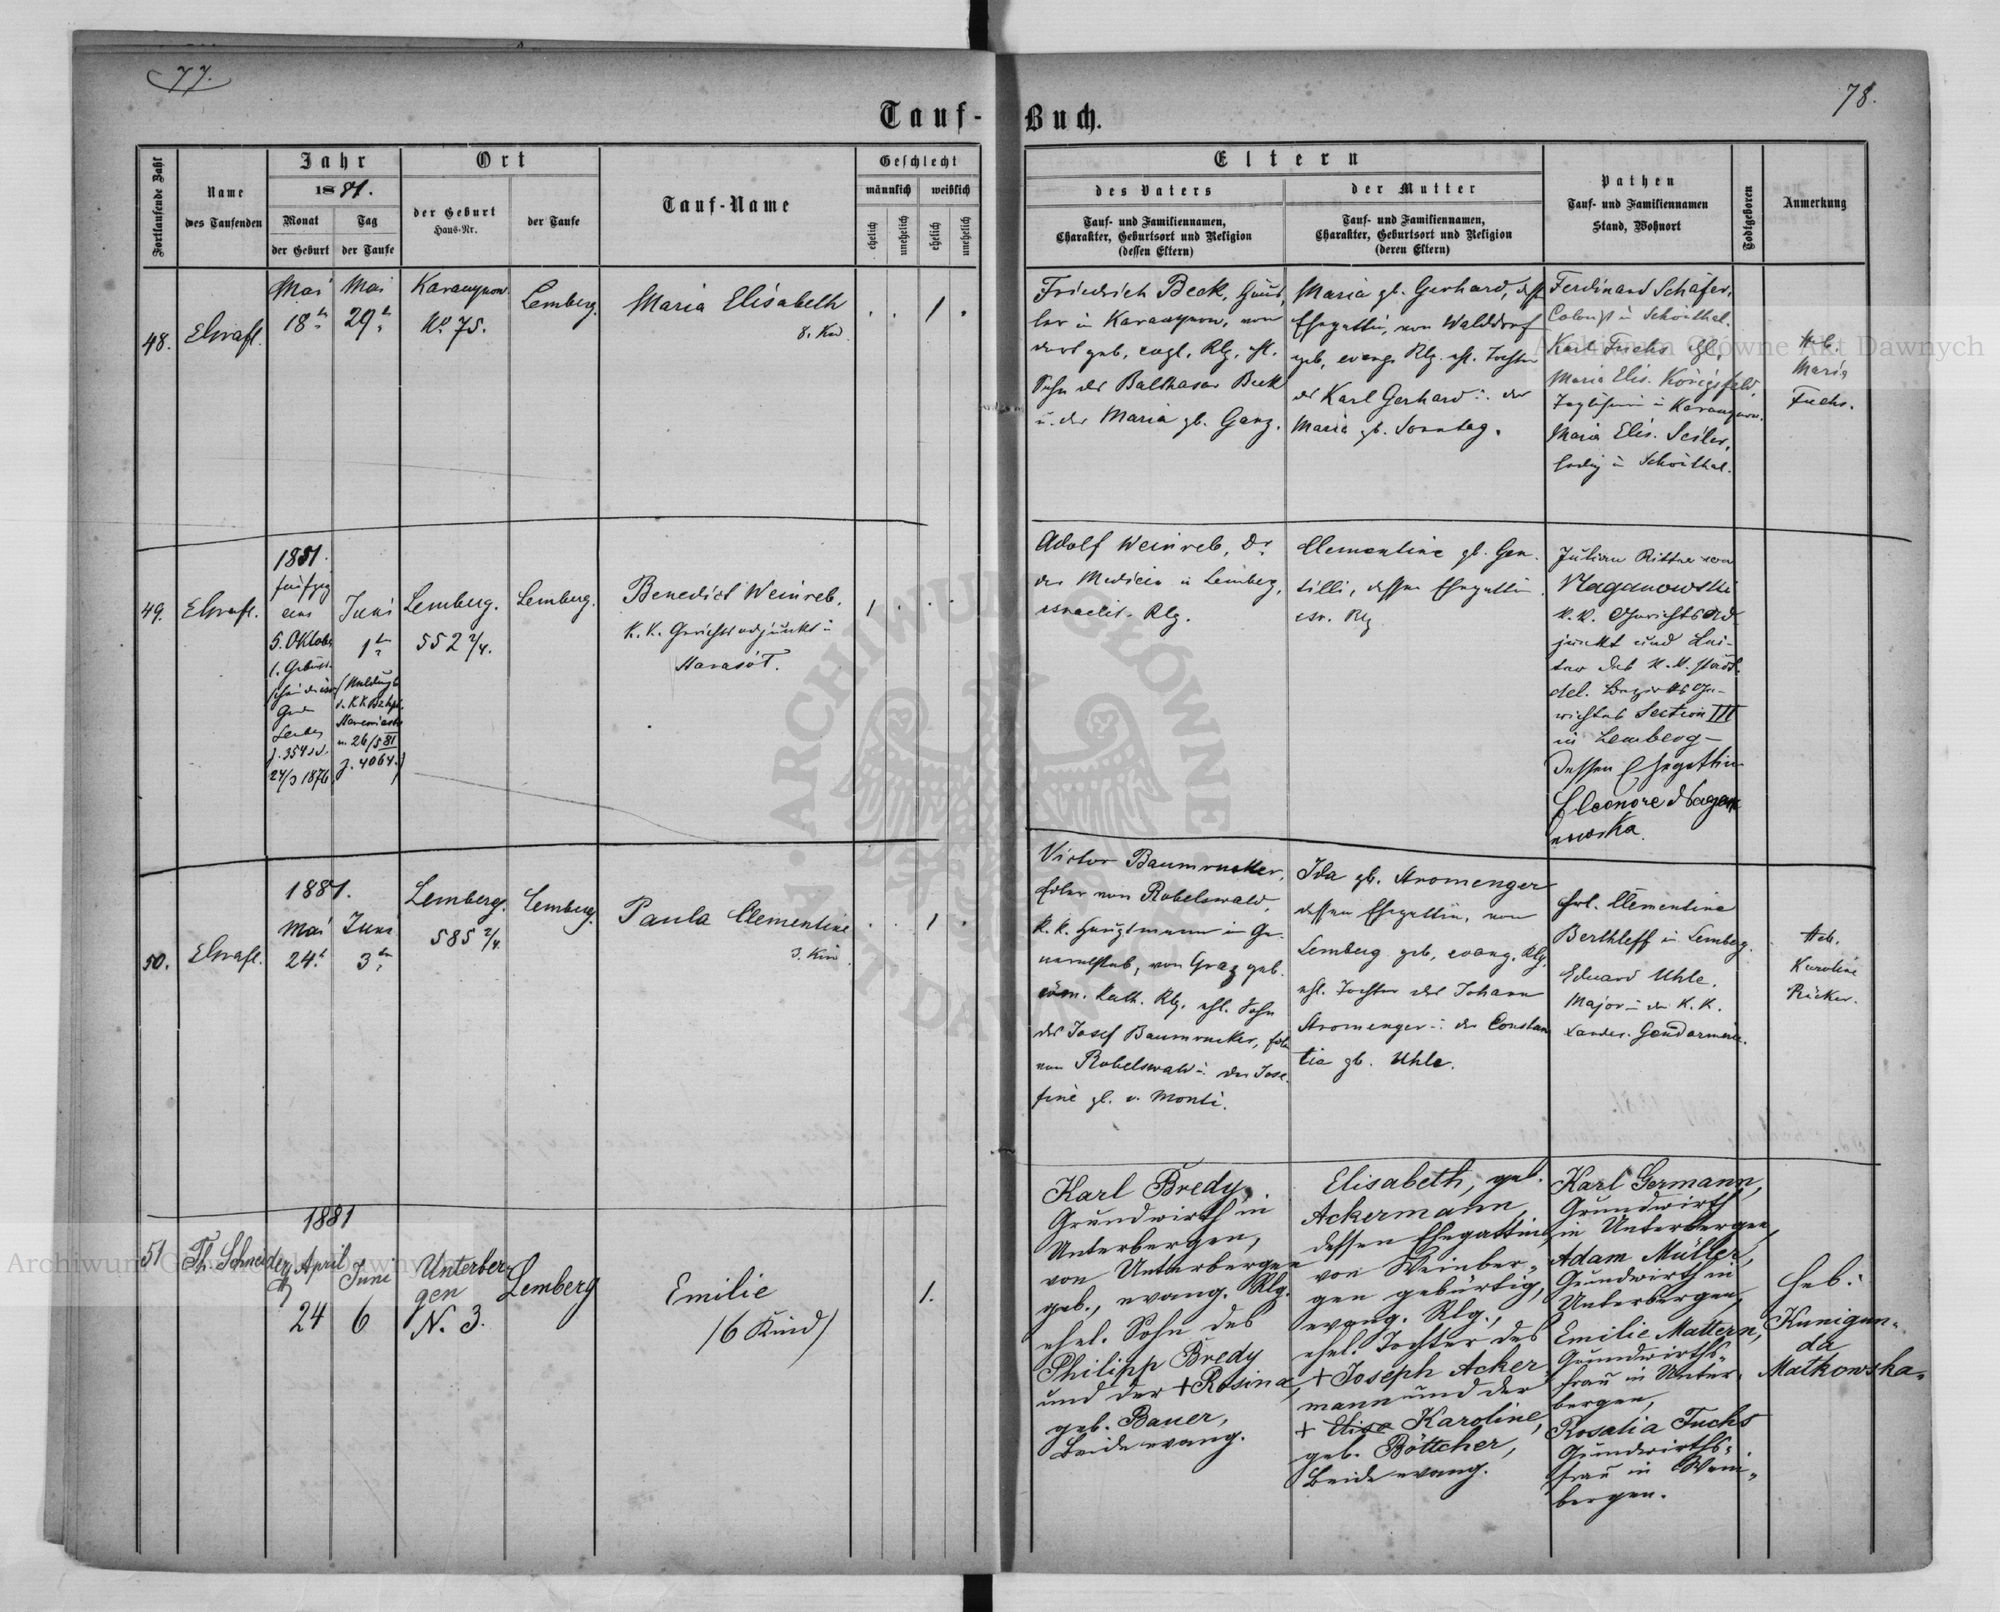 77.
78.
Tauf-Buch.
Fortlaufende Zahl
Name
des Taufenden
Jahr
1881.
Monat
der Geburt
Tag
der Taufe
Ort
der Geburt
Haus-Nr.
der Taufe
Tauf-Name
Geschlecht
männlich
weiblich
ehelich
unehelich
ehelich
unehelich
Eltern
des Vaters
Tauf- und Familiennamen,
Charakter, Geburtsort und Religion
(dessen Eltern)
der Mutter
Tauf- und Familiennamen,
Charakter, Geburtsort und Religion
(deren Eltern)
Pathen
Tauf- und Familiennamen
Stand, Wohnort
Todtgeboren
Anmerkung
48.
Mai
18
Mai
29
No 75.
Lemberg.
Maria Elisabeth
8. Kind
1
Friedrich Beck,
Sohn des Balthasar Beck
u. der Maria gb. Ganz.
Maria gb. Gerhard,
Ehegattin, von Walddorf
geb, evang. Rlg. ehl. Tochter
des Karl Gerhard u. der
Maria gb. Sonntag.
Ferdinand Schäfer,
Colonist in Schönthal.
Karl Fuchs
Maria Elis. Königsfeld,
Maria Elis. Seiler,
ledig in Schönthal.
Heb.
Maria
Fuchs.
49.
1851.
fünfzig
eins
5. Oktober
24/3 1876
Juni
1
z. 4064.)
Lemberg.
552 2/4.
Lemberg.
Benedict Weinreb,
K. K. Gerichtsadjunkt in
1
Adolf Weinreb, Dr
der Medicin in Lemberg,
israelit. Rlg.
Clementine gb. Gen-
tilli, dessen Ehegattin
isr. Rlg
Julian Ritter von
K. K. Gerichtsad
junkt und Lei-
ter des K. K. städt.
del. Bezirks Ge-
richtes Section III
in Lemberg –
dessen Ehegattin
Eleonore
50.
1881.
Mai
24.
Juni
3
Lemberg.
585 2/4.
Lemberg.
Paula Clementine
3. Kind
1
Victor Baumrucker,
Edler von Robelswald,
K. K. Hauptmann im Ge-
neralstab, von Graz geb.
röm. kath. Rlg. ehl. Sohn
des Josef Baumrucker, Edlen
von Robelswald u. der Jose-
fine gb. v. Monti.
Ida gb. Stromenger
dessen Ehegattin, von
Lemberg geb, evang. Rlg.
ehl. Tochter des Johann
Stromenger u. der Constan
tia gb. Uhle.
Frl. Clementine
Berthleff in Lemberg.
Eduard Uhle.
Major in der K. K.
Landes-Gendarmerie.
Heb.
Karoline
Rücker.
51
Th. Schneider
1881
April
24
Juni
6
Unterber-
gen
N. 3.
Lemberg
Emilie
/6 Kind/
1.
Karl Bredy,
Grundwirth in
Unterbergen,
von Unterbergen
geb., evang. Rlg.
ehel. Sohn des
Philipp Bredy
und der + Rosina,
geb. Bauer,
Beide evang.
Elisabeth, geb.
Ackermann,
dessen Ehegattin,
von Weinber-
gen gebürtig,
evang. Rlg.,
ehel. Tochter des
+ Joseph Acker
mann und der
+ Elise Karoline,
geb. Böttcher,
Beide evang.
Karl Germann,
Grundwirth
in Unterbergen,
Adam Müller,
Grundwirth in
Unterbergen,
Emilie Mattern,
Grundwirths-
frau in Unter-
bergen,
Rosalia Fuchs
Grundwirths-
frau in Wein-
bergen.
Heb:
Kunigun-
da
Matkowska.
Archiwum Główne Akt Dawnych
Archiwum Główne Akt Dawnych
ARCHIWUM GŁÓWNE AKT DAWNYCH